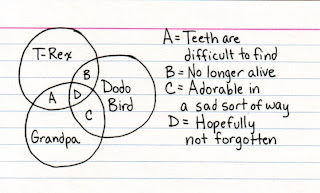 T-Rex
B
Dodo
Bird
A
D
C
Grandpa
A = Teeth are
difficult to find
B = No longer alive
C = Adorable in
a sad sort of way
D = Hopefully
not forgotten